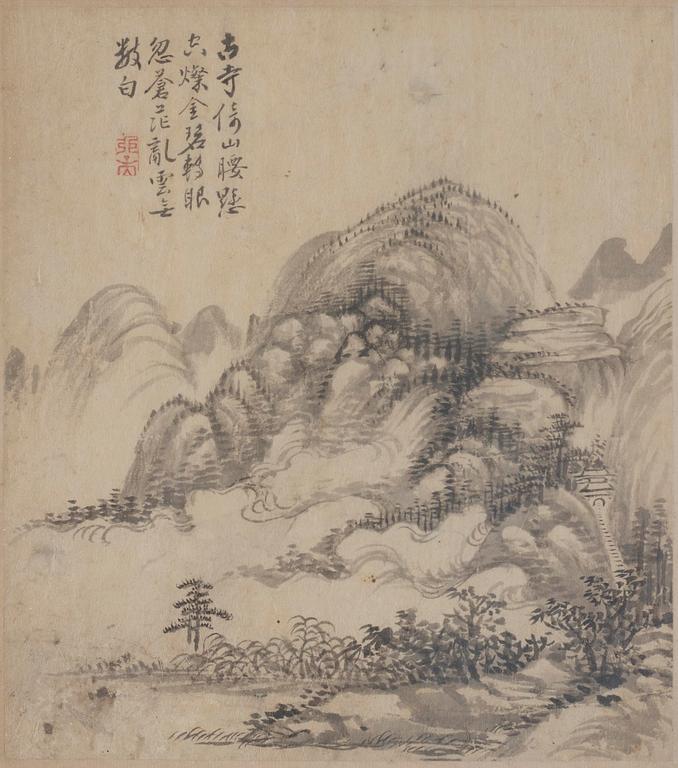 古寺倚山腰懸
空燦金碧轉眼
忽蒼茫亂雲無
數白